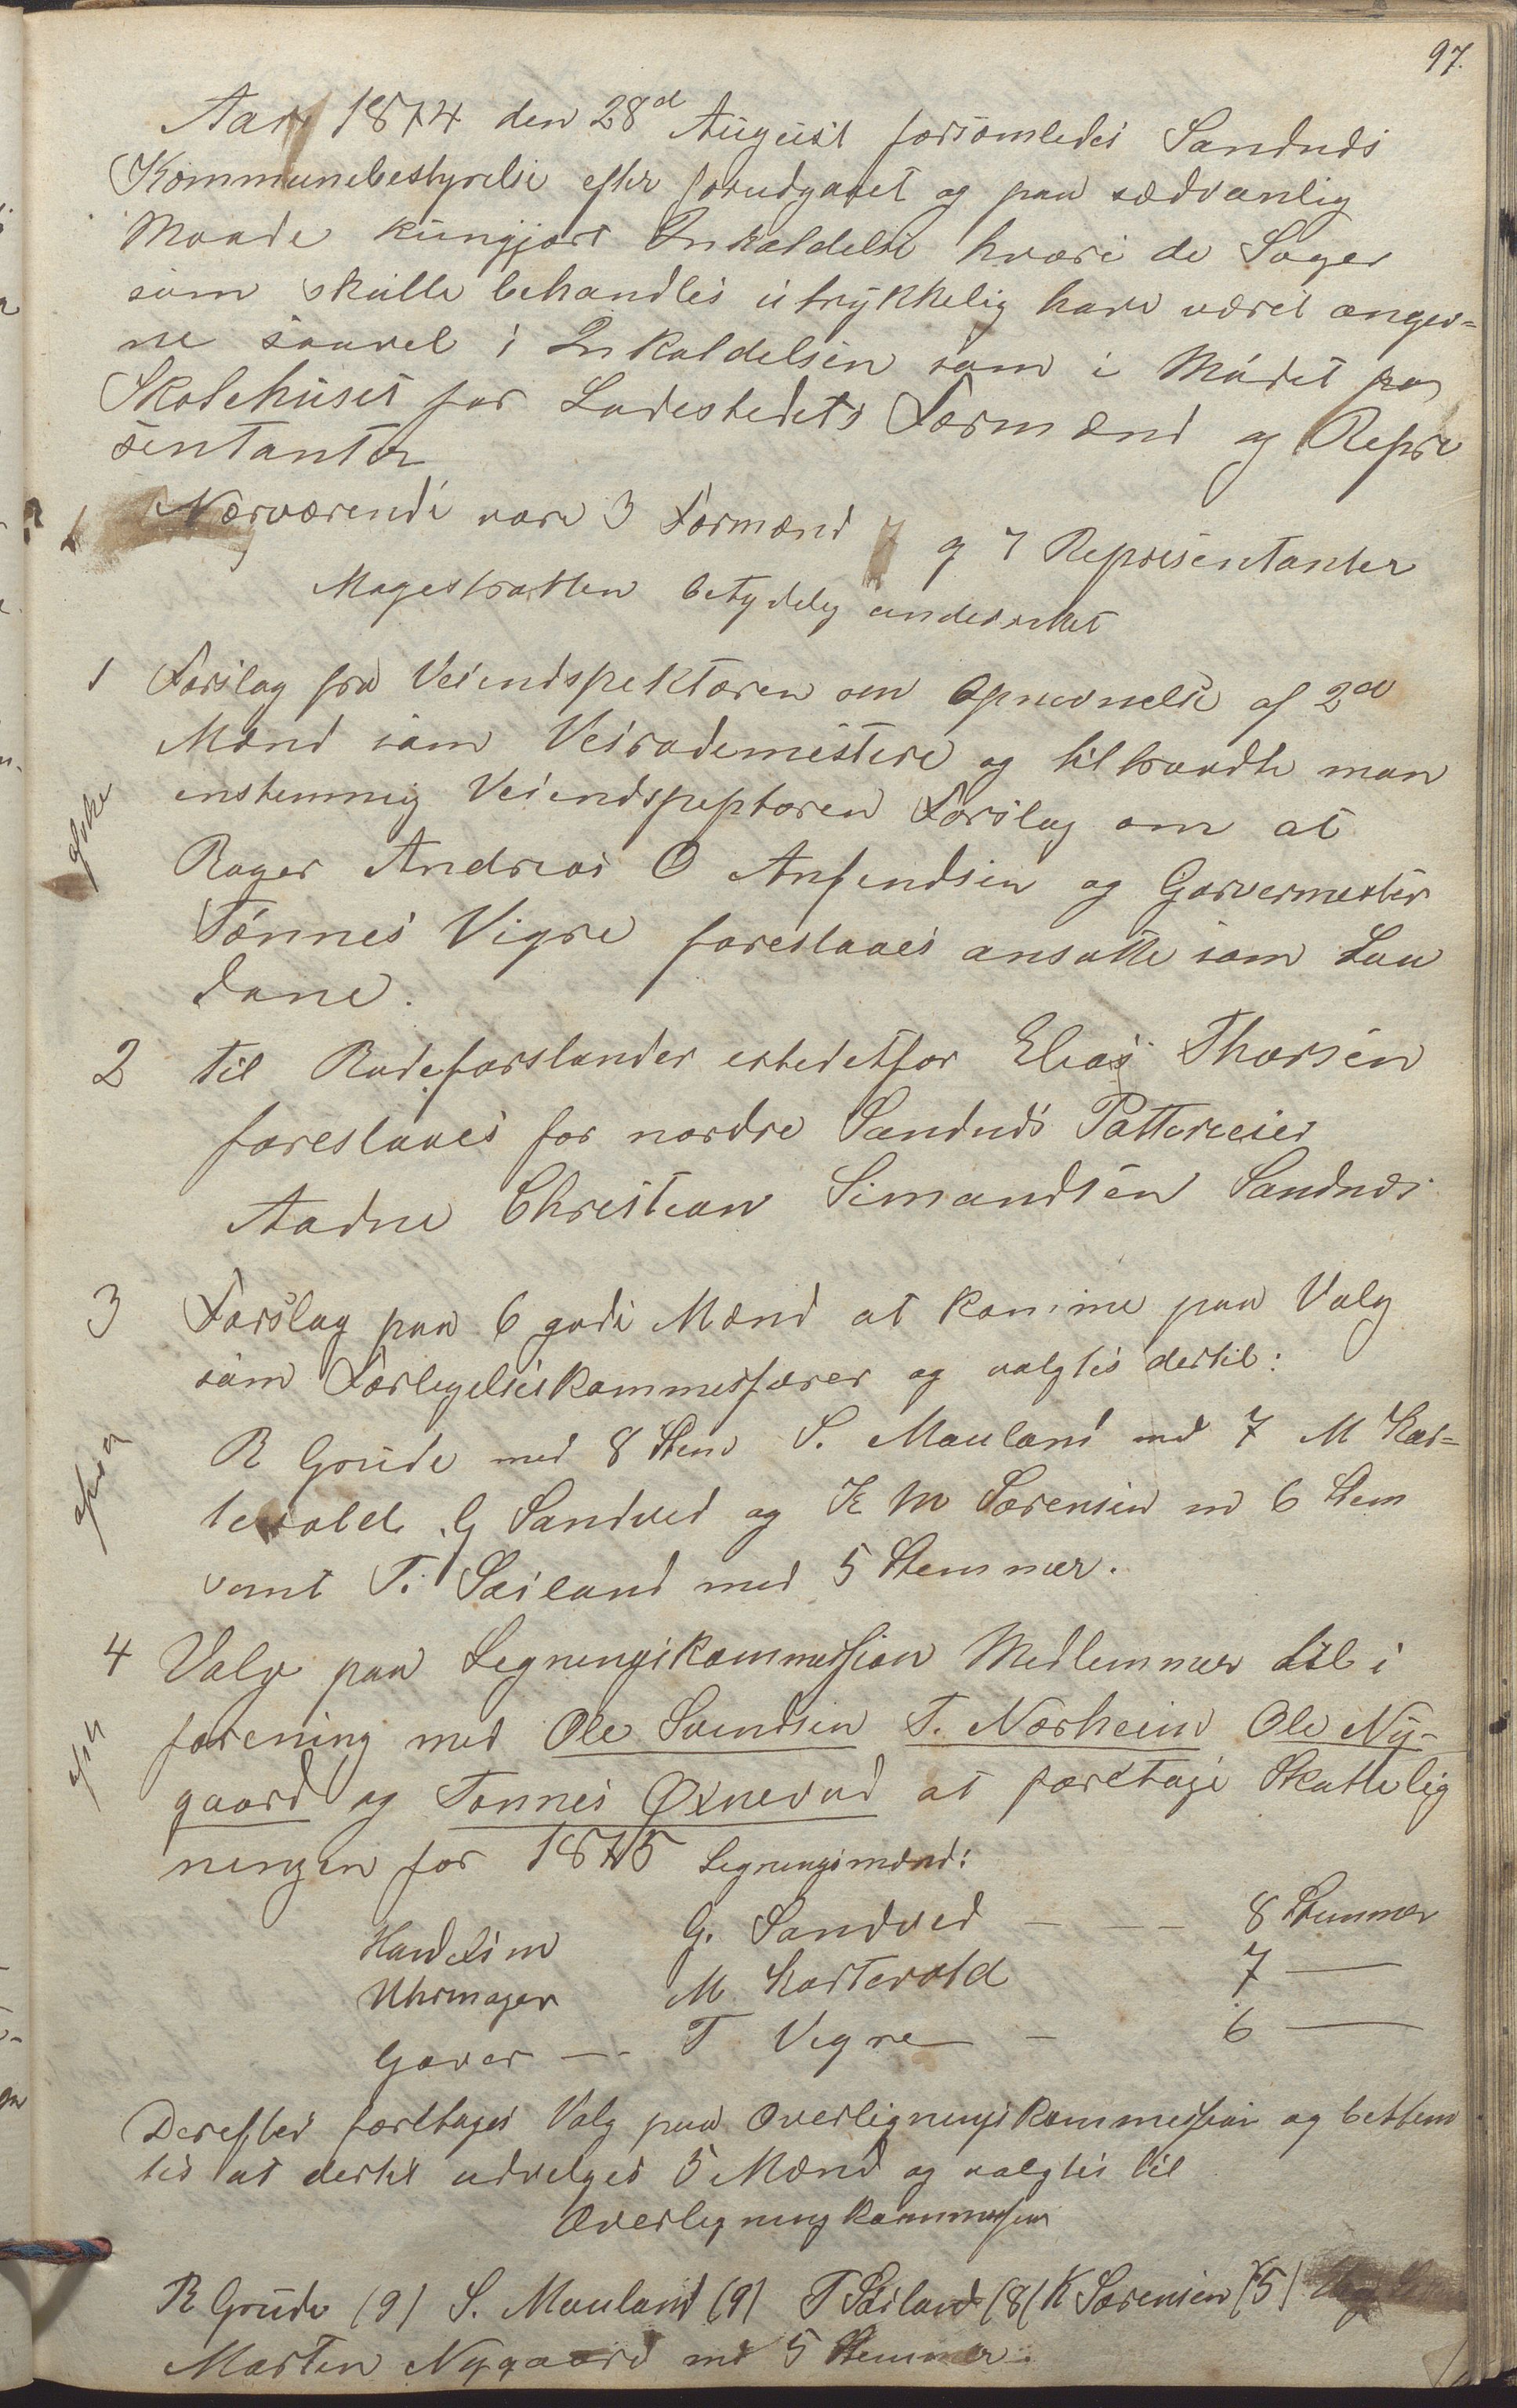 97.
Aar 1874 den 28d August forsamledes Sandnæs
Kommunebestyrelse efter forudgaaet og paa sædvanlig
Maade kungjort Inkaldelse hvori de Sager
som skulle behandles utrykkelig have været angiv=
ne saavel i Inkaldelsen som i Mødet paa
Skolehuset for Ladestedets Formænd og Repre
sentanter
Nærværende vare 3 Formænd og 7 Represientanter
Magestratten betydelig
1 Forslag fra Veiendspektøren om Opnevnelse af 2de
Mænd som Veirodemestere og tiltraadte man
enstemmig Veiendspeptøren Forslag om at
Bager Andreas O Anfendsen og Garvermester
Tønnes Vigre foreslaaes ansatte som Saa
dane.
2 til Rodeforstander istedetfor Elias Thorsen
foreslaaes for nordre Sandnæs Potterieier
Aadne Christian Simondsen Sandnæs
3 Forslag paa 6 gode Mænd at komme paa Valg
som Forligelseskommesærer og valgtes dertil:
R Grude med 8 Stem S. Mauland med 7 M Kar=
tevold G Sandved og K M Sørensen m 6 Stem
samt T. Sæiland med 5 Stemmer.
4 Valg paa Legningskommession Medlemmer til i
forening med Ole Svendsen T. Norheim Ole Ny-
gaard og Tønnes Øxnevad at foretage Skattelig
ningen for 1875 Legningsmænd:
Handelsm G. Sandved — — — 8 Stemmer
Uhrmager M Kartevold 7 —
Gaver — T Vigre — 6 —
Derefter foretages Valg paa Overligningskommession og bestem
tes at dertil udvelges 5 Mænd og valgtes til
Overligningkommession
R Grude (9) S. Mauland (9) T Sæiland (8) K Sørensen (5)
Morten Nygaard med 5 Stemmer.